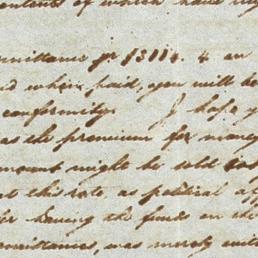 of which have
mittance pr $3114. 4 an
when paid, you will be
conformity. I hope y
as the premium for money
mount might be sold
at this rate, as political af
having the funds on the
mittances, was merely